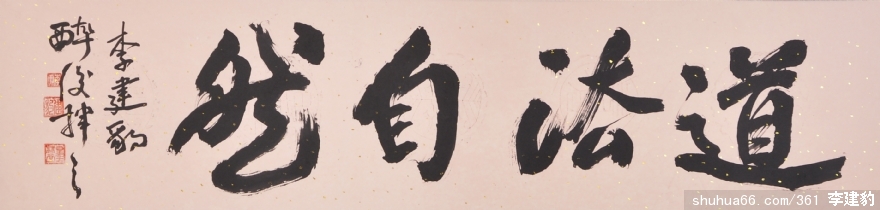 道法自然
李建豹
醉后抨之
shuhua66.com/361 李建豹